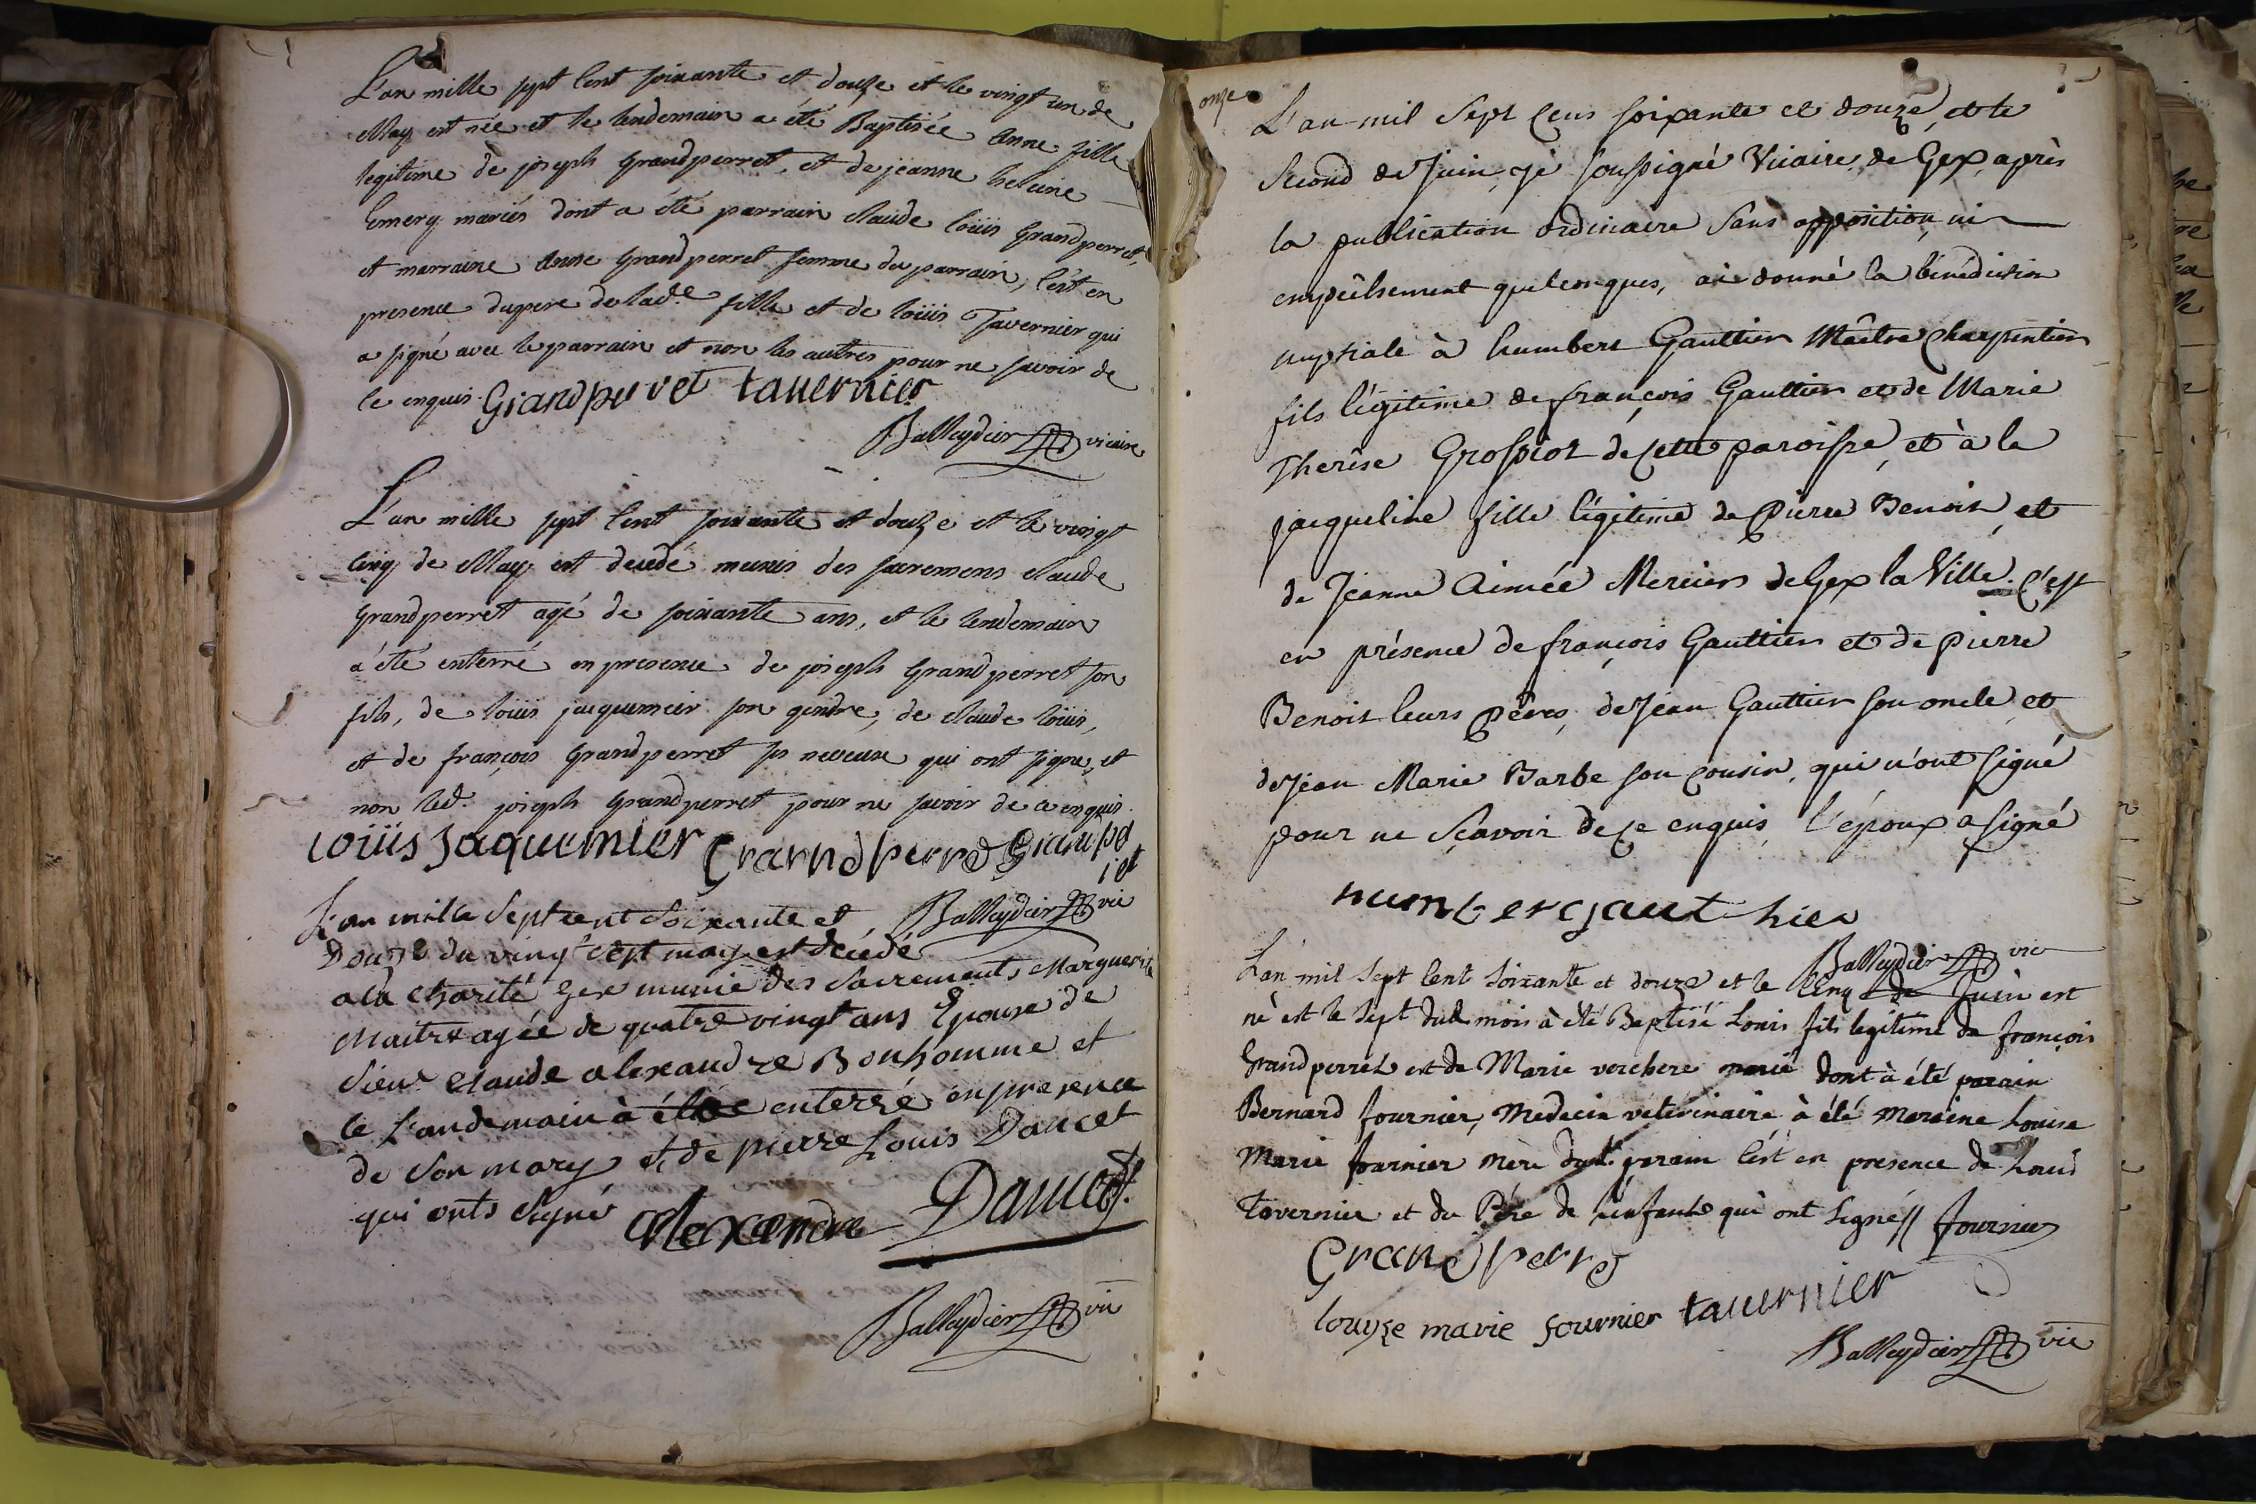 L'an mille sept cent soixante et douze et le vingt un de
May est née et le lendemain a été Baptisée Anne fille
legitime de joseph Grandperret, et de jeanne heleine
Emery mariés dont a été parrain claude loüis Grandperret,
et marraine Anne Grandperret femme du parrain, c'est en
presence du pere de lad.e fille et de loüis Tavernier qui
a signé avec le parrain et non les autres pour ne savoir de
ce enquis. Grandperret tavernier
Balleydier vicaire
L'an mille sept cent soixante et douze et le vingt
cinq de May est decedé munis des sacremens claude
Grandperret agé de soixante ans, et le lendemain
a été enterré en presence de joseph Grandperret son
fils, de loüis jaquemier son gendre, de claude loüis,
et de françois Grandperret ses neveux qui ont signé, et
non led. joseph Grandperret pour ne savoir de ce enquis.
loüis jaquemier Grandperret
Balleydier vic
L'an mille Sept cent Soixante et
Douze du vingt sept may est décédé
a la Charité Gex munie des Sacrements Marguerite
Maitre agée de quatre vingt ans Epouse de
Sieur Claude alexandre Bonhomme et
le Landemain à été enterré en presence
de Son mary et de pierre Louis Dancet
qui onts Signé alexandre Dancet
Balleydier vic
onze
L'an mil Sept Cens soixante et douze, et le
Second de Juin, je soussigné Vicaire de Gex, après
la publication ordinaire sans opposition, ni
empêchement quelconques, ai donné la bénédiction
nuptiale à humbert Gauttier Maître Charpentier
fils légitime de françois Gauttier et de Marie
Therêse Grospiot de Cette paroisse, et à la
jacqueline fille légitime de Pierre Benoit, et
de Jeanne Aimée Mercier de Gex la Ville. C'est
en présence de françois Gauttier et de pierre
Benoit leurs Pêres, de Jean Gauttier son oncle, et
de Jean Marie Barbe son Cousin, qui n'ont signé
pour ne Sçavoir de ce enquis, l'époux a signé
humbert gaut hier
Balleydier vic
L'an mil sept Cent Soixante et douze et le Cinq de Juin est
né est le Sept dud mois à été Baptisé Louis fils legitime de françois
Grandperret et de Marie verchere marié dont à été parain
Bernard fournier, Medecin veterinaire à été Maraine Louise
Marie fournier Mère dud. parain C'est en presence de Louis
Tavernier et du Père de l'enfant qui ont Signé // fournier
Grandperret
louyse marie fournier tavernier
Balleydier vic